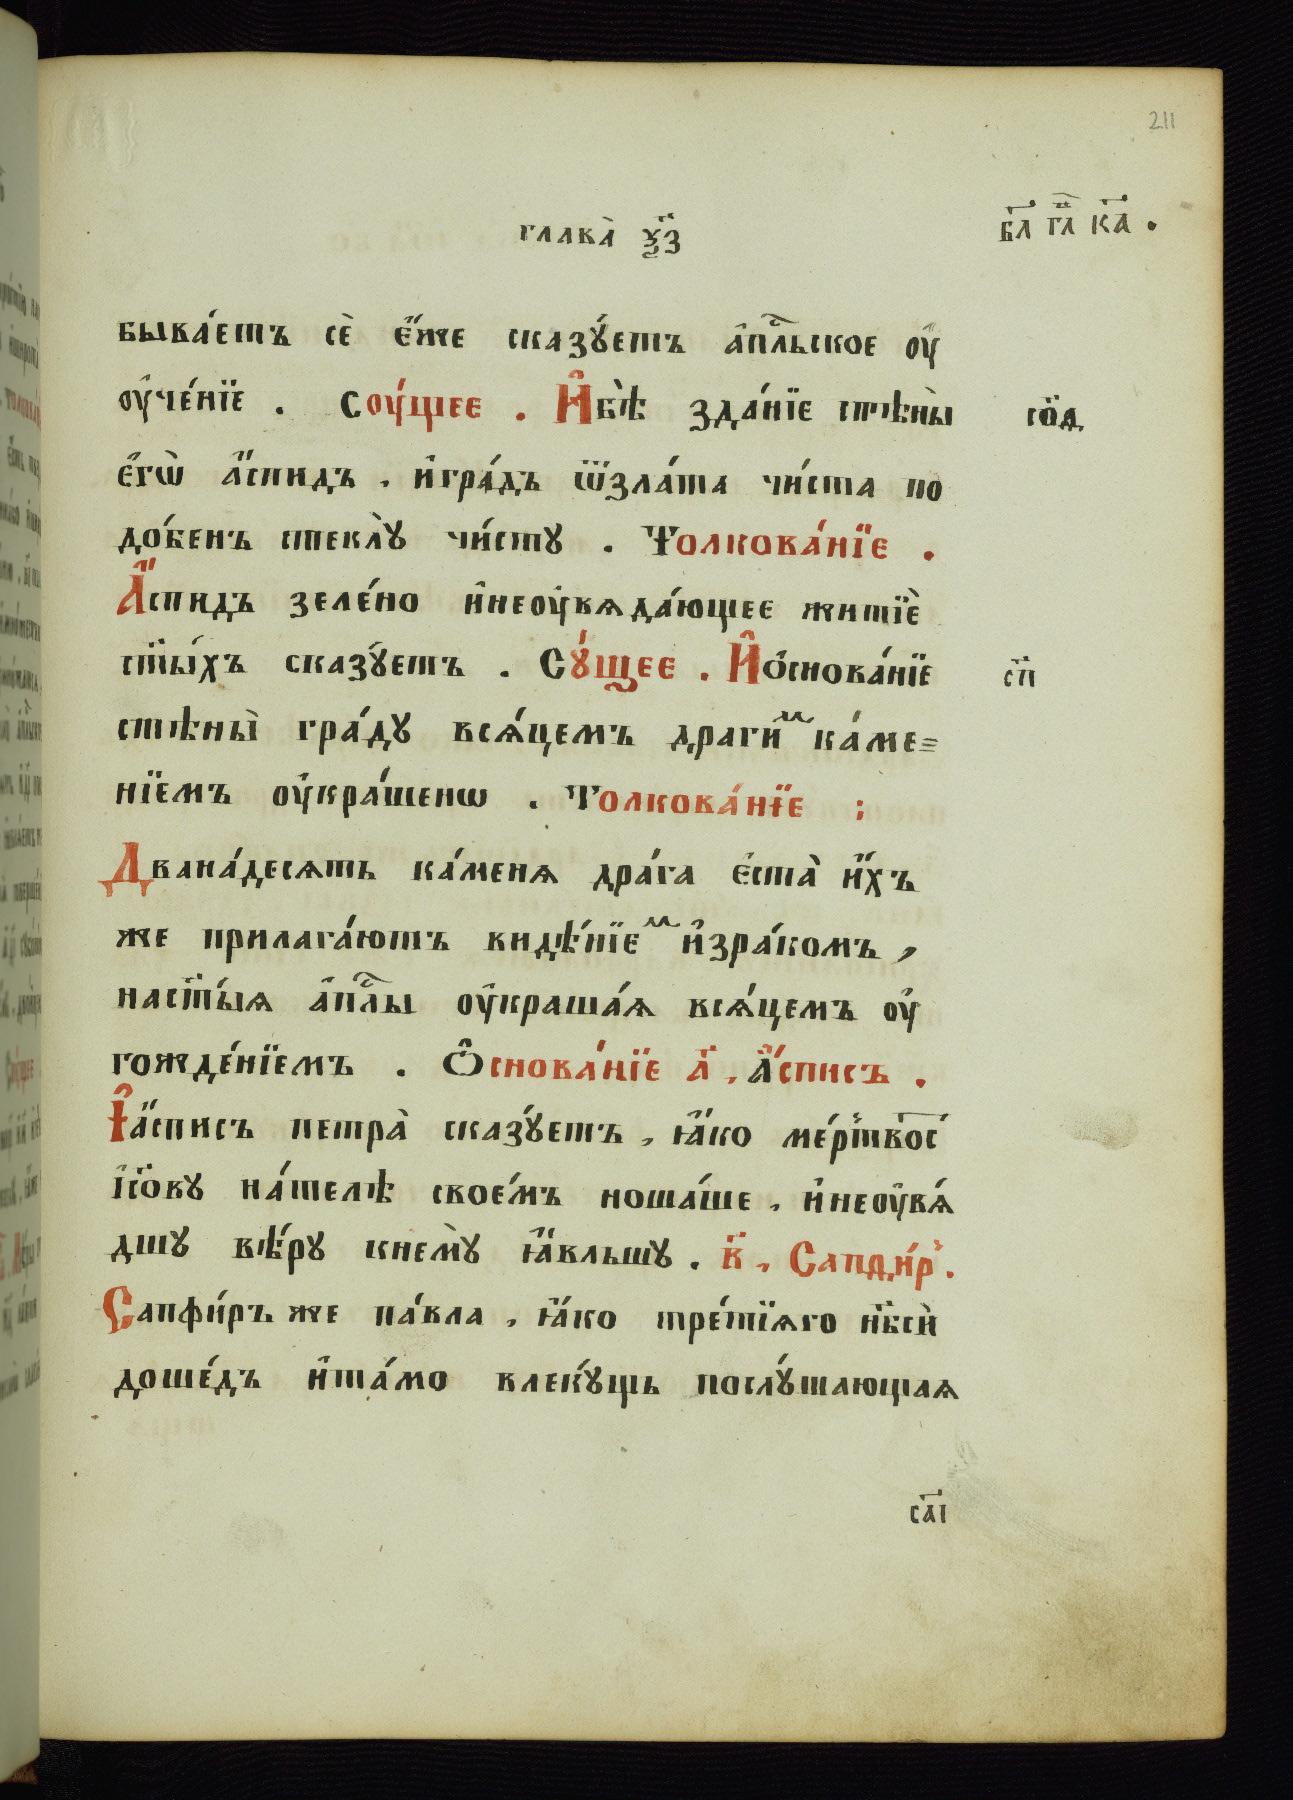 211
глава̀ ѯ҃з
бл҃ гл҃ ка҃ .
быва́етъ сѐ є҆́же сказꙋ́етъ а҆пⷭ҇льское оу҆
оу҆че́нїе . Соу́щее . И҆бѣ̀ зда́нїе стѣны̀ со҃д
є҆гѡ̀ а҆́спидъ , и҆гра́дъ ѿзла́та чи́ста по
до́бенъ стеклꙋ̀ чи́стꙋ . Толкова́нїе .
А҆́спидъ зеле́но и҆неоу҆вѧда́ющее житїѐ
ст҃ы́хъ сказꙋ́етъ . Сꙋ́щее . И҆ѻ҆снова́нїе сп҃
стѣны̀ гра́дꙋ всѧ́цемъ драги́ⷨ ка́ме=
нїемъ оу҆кра́шенѡ . Толкова́нїе :
Двана́десѧть ка́менѧ дра́га є҆ста̀ и҆́хъ
же прилага́ютъ видѣ́нїеⷨ и҆зра́комъ ,
наст҃ы́ѧ а҆пⷭ҇лы оу҆краша́ѧ всѧ́цемъ оу҆
гожде́нїемъ . Ѻ҆снова́нїе а҃ , А҆́спись .
І҆а́списъ петра̀ сказꙋ́етъ , ꙗ҆́ко ме́ртвос
нѣ́овꙋ на́телѣ свое́мъ ноша́ше , и҆неоу҆вѧ́
дшꙋ вѣ́рꙋ кнемꙋ̀ ꙗ҆́вльшꙋ . в҃ , Сапѳи́р .
Сапфи́ръ же па́вла , ꙗ҆́ко тре́тїѧго нб҃сѝ
доше́дъ и҆та́мо влекꙋ́щь послꙋ́шающаѧ
са҃і